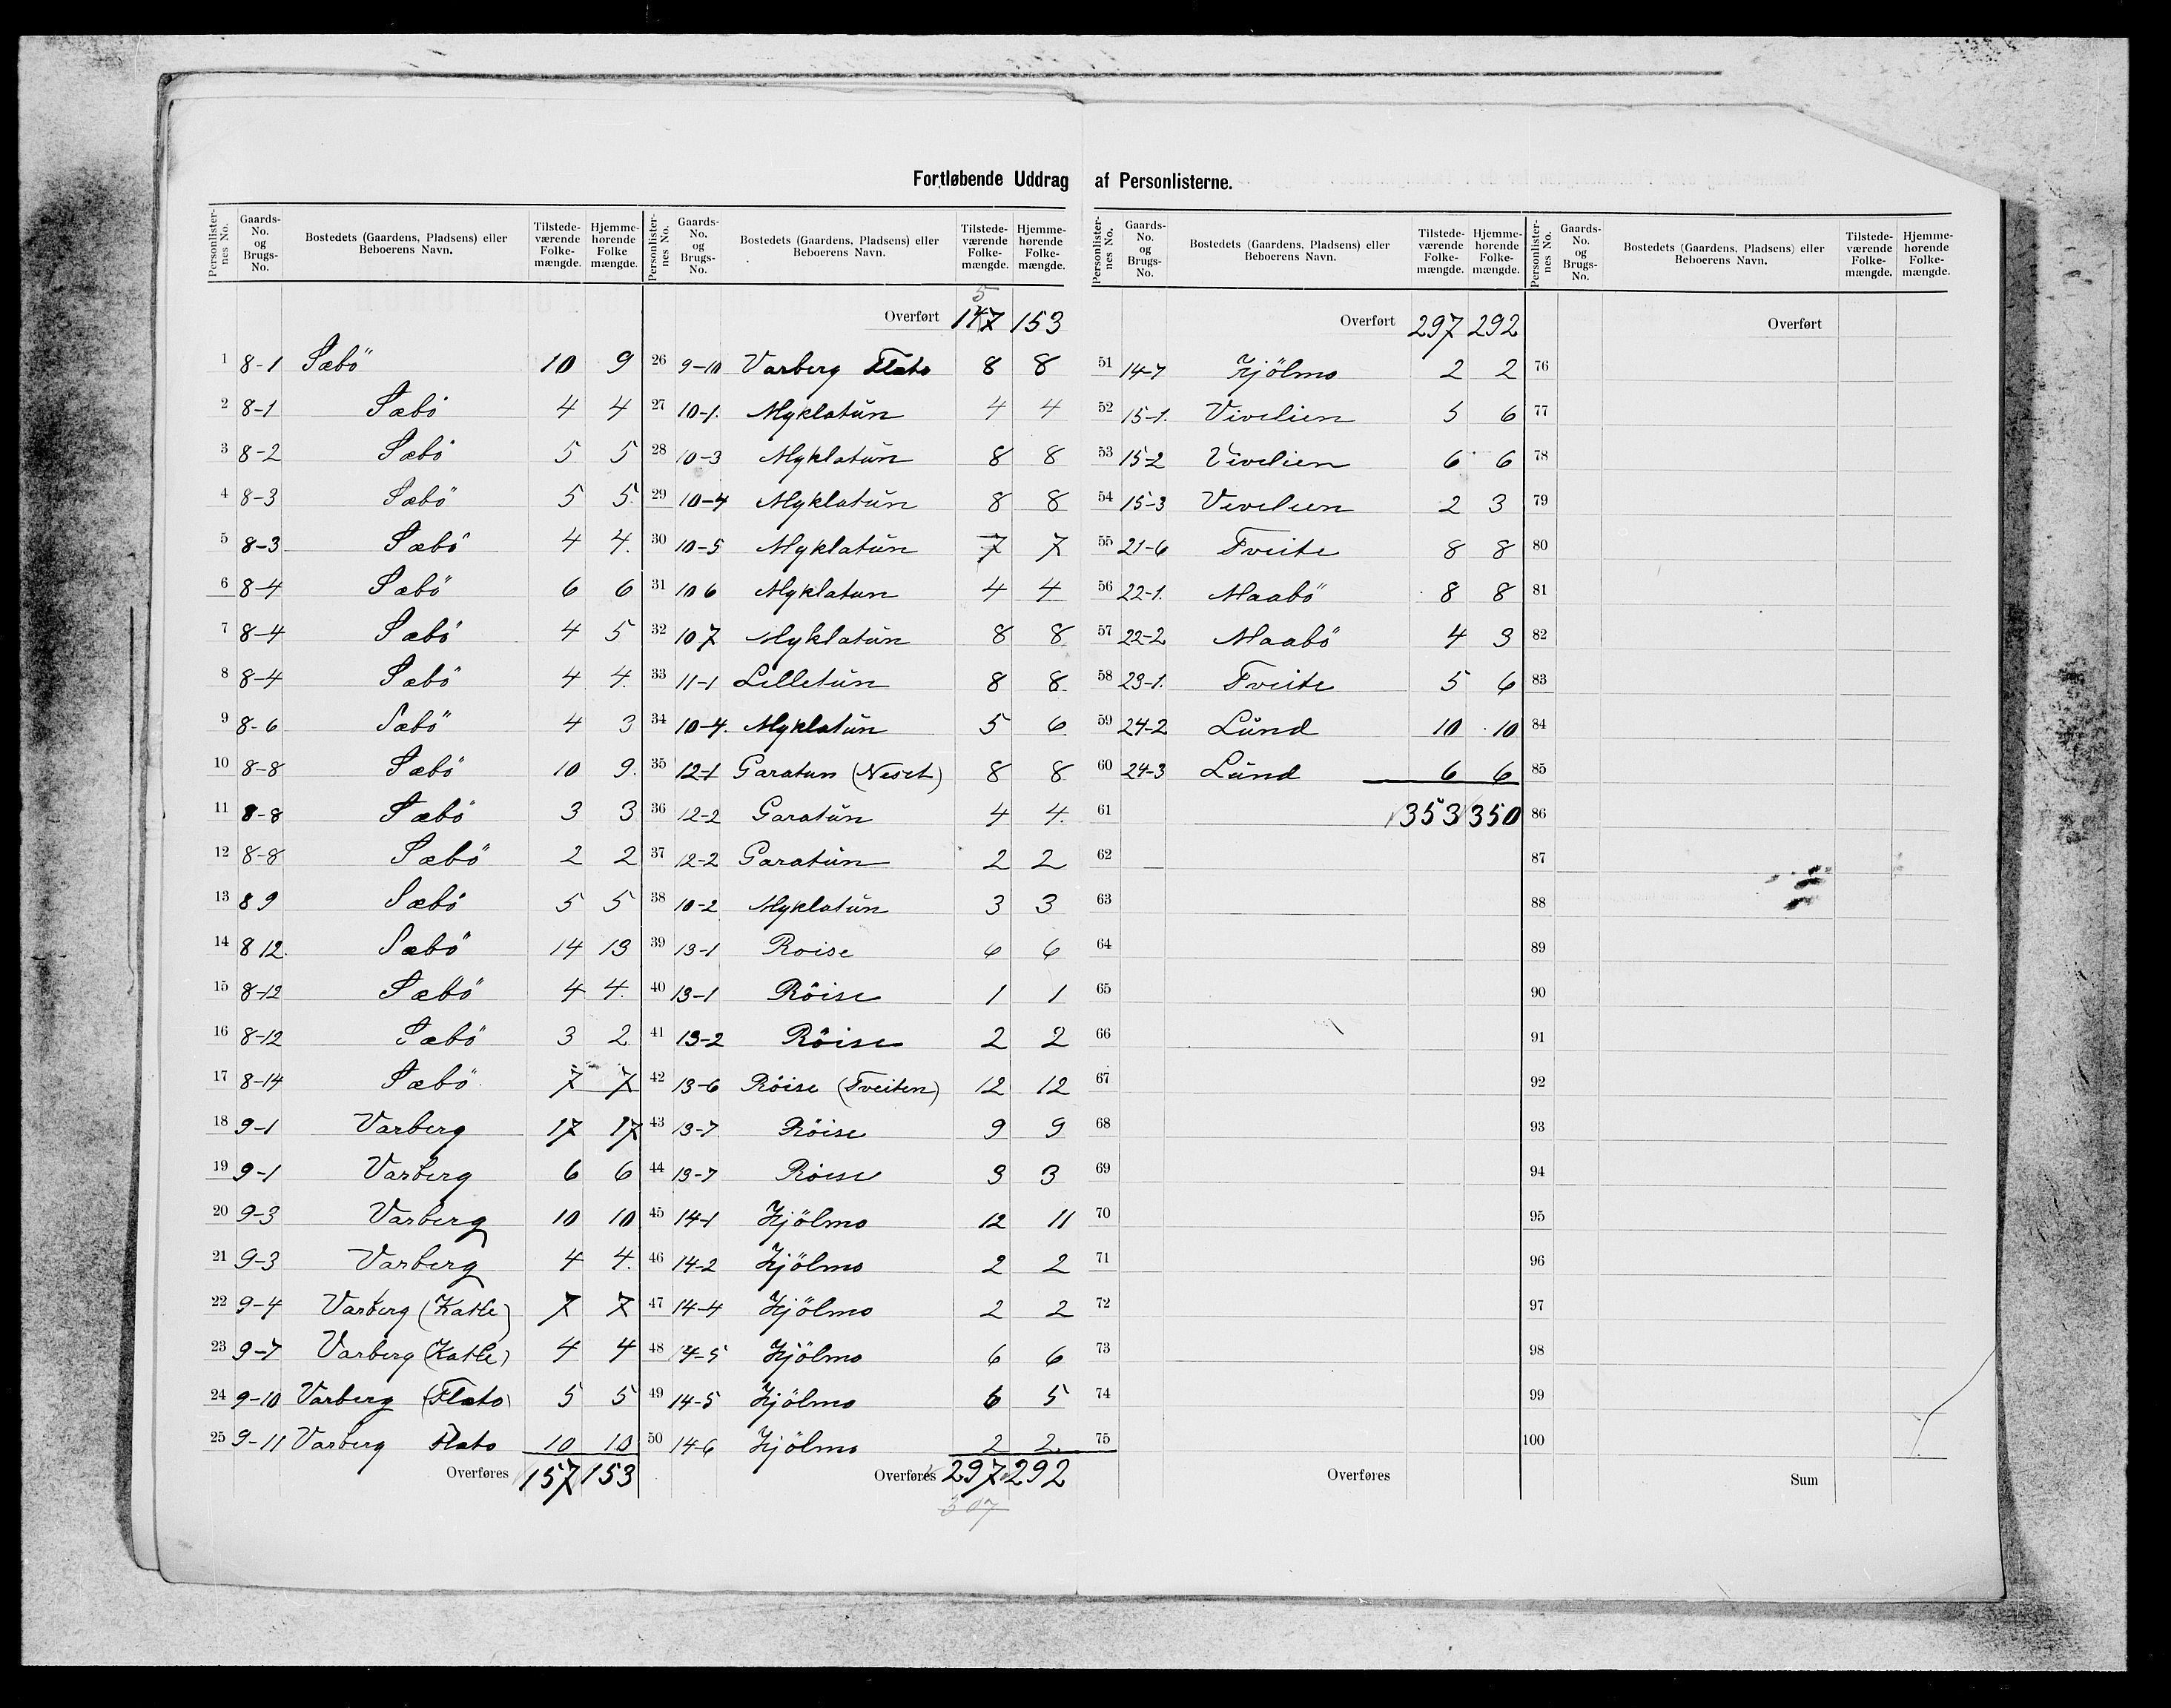 Fortløbende Uddrag af Personlisterne.
Personlisternes No. Gaards-No. og Brugs-No. Bostedets (Gaardens, Pladsens) eller Beboerens Navn. Tilstedeværende Folkemængde. Hjemmehørende Folkemængde.
1 8-1 Sæbö 10 9
2 8-1 Sæbö 4 4
3 8-2 Sæbö 5 5
4 8-3 Sæbö 5 5
5 8-3 Sæbö 4 4
6 8-4 Sæbö 6 6
7 8-4 Sæbö 4 5
8 8-4 Sæbö 4 4
9 8-6 Sæbö 4 3
10 8-8 Sæbö 10 9
11 8-8 Sæbö 3 3
12 8-8 Sæbö 2 2
13 8 9 Sæbö 5 5
14 8 12 Sæbö 14 13
15 8-12 Sæbö 4 4
16 8-12 Sæbö 3 2
17 8-14 Sæbö 7 7
18 9-1 Varberg 17 17
19 9-1 Varberg 6 6
20 9-3 Varberg 10 10
21 9-3 Varberg 4 4
22 9-4 Varberg (Katle) 7 7
23 9-7 Varberg (Katle) 4 4
24 9-10 Varberg (Flato) 5 5
25 9-11 Varberg Flato 10 10
Overføres 157 153
Personlisternes No. Gaards-No. og Brugs-No. Bostedets (Gaardens, Pladsens) eller Beboerens Navn. Tilstedeværende Folkemængde. Hjemmehørende Folkemængde.
5
Overført 147 153
26 9-10 Varberg Flato 8 8
27 10-1. Myklatŭn 4 4
28 10-3 Myklatŭn 8 8
29 10-4 Myklatŭn 8 8
30 10-5 Myklatŭn 7 7
31 10 6 Myklatun 4 4
32 10 7 Myklatŭn 8 8
33 11-1 Lilletŭn 8 8
34 10-4. Myklatŭn 5 6
35 12-1 Garatun (Neset) 8 8
36 12-2 Garatŭn 4 4
37 12-2 Garatŭn 2 2
38 10-2 Myklatŭn 3 3
39 13-1 Roise 6 6
40 13-1 Röise 1 1
41 13-2 Röise 2 2
42 13-6 Röise (Tveiten) 12 12
43 13-7 Röise 9 9
44 13-7 Röise 3 3
45 14-1 Kjölmo 12 11
46 14-2 Kjölmo 2 2
47 14-4 Kjölmo 2 2
48 14-5 Kjölmo 6 6
49 14-5 Kjölmo 6 5
50 14-6 Kjölmo 2 2
Overføres 297 292
307
Personlisternes No. Gaards-No. og Brugs-No. Bostedets (Gaardens, Pladsens) eller Beboerens Navn. Tilstedeværende Folkemængde. Hjemmehørende Folkemængde.
Overført 297 292
51 14-7 Kjölmo 2 2
52 15-1. Vivelien 5 6
53 15-2 Vivelien 6 6
54 15-3 Vivelien 2 3
55 21-6 Tveite 8 8
56 22-1. Maabö 8 8
57 22-2 Maabö 4 3
58 23-1. Tveite 5 6
59 24-2 Lŭnd 10 10
60 24-3 Lŭnd 6 6
61 353 350
62
63
64
65
66
67
68
69
70
71
72
73
74
75
Overføres
Personlisternes No. Gaards-No. og Brugs-No. Bostedets (Gaardens, Pladsens) eller Beboerens Navn. Tilstedeværende Folkemængde. Hjemmehørende Folkemængde.
Overført
76
77
78
79
80
81
82
83
84
85
86
87
88
89
90
91
92
93
94
95
96
97
98
99
100
Sum